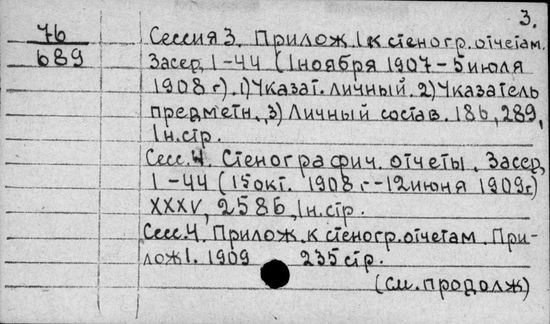 3.
76
689
Сессия 3. Прилож. 1 к стеногр. отчетам.
Засед. 1-44 (1 ноября 1907-5 июля
1908 г.). 1) Указат. личный. 2) Указатель
предметн. 3) Личный состав. 186, 289,
1 н. стр.
Сесс. 4. Стенографич. отчеты. Засед.
1-44 (15 окт. 1908 г-12 июня 1909 г)
XXXV, 2586, 1 н. стр.
Сесс. 4. Прилож. к стеногр. отчетам. При-
лож 1. 1909 235 стр.
(см. продолж)